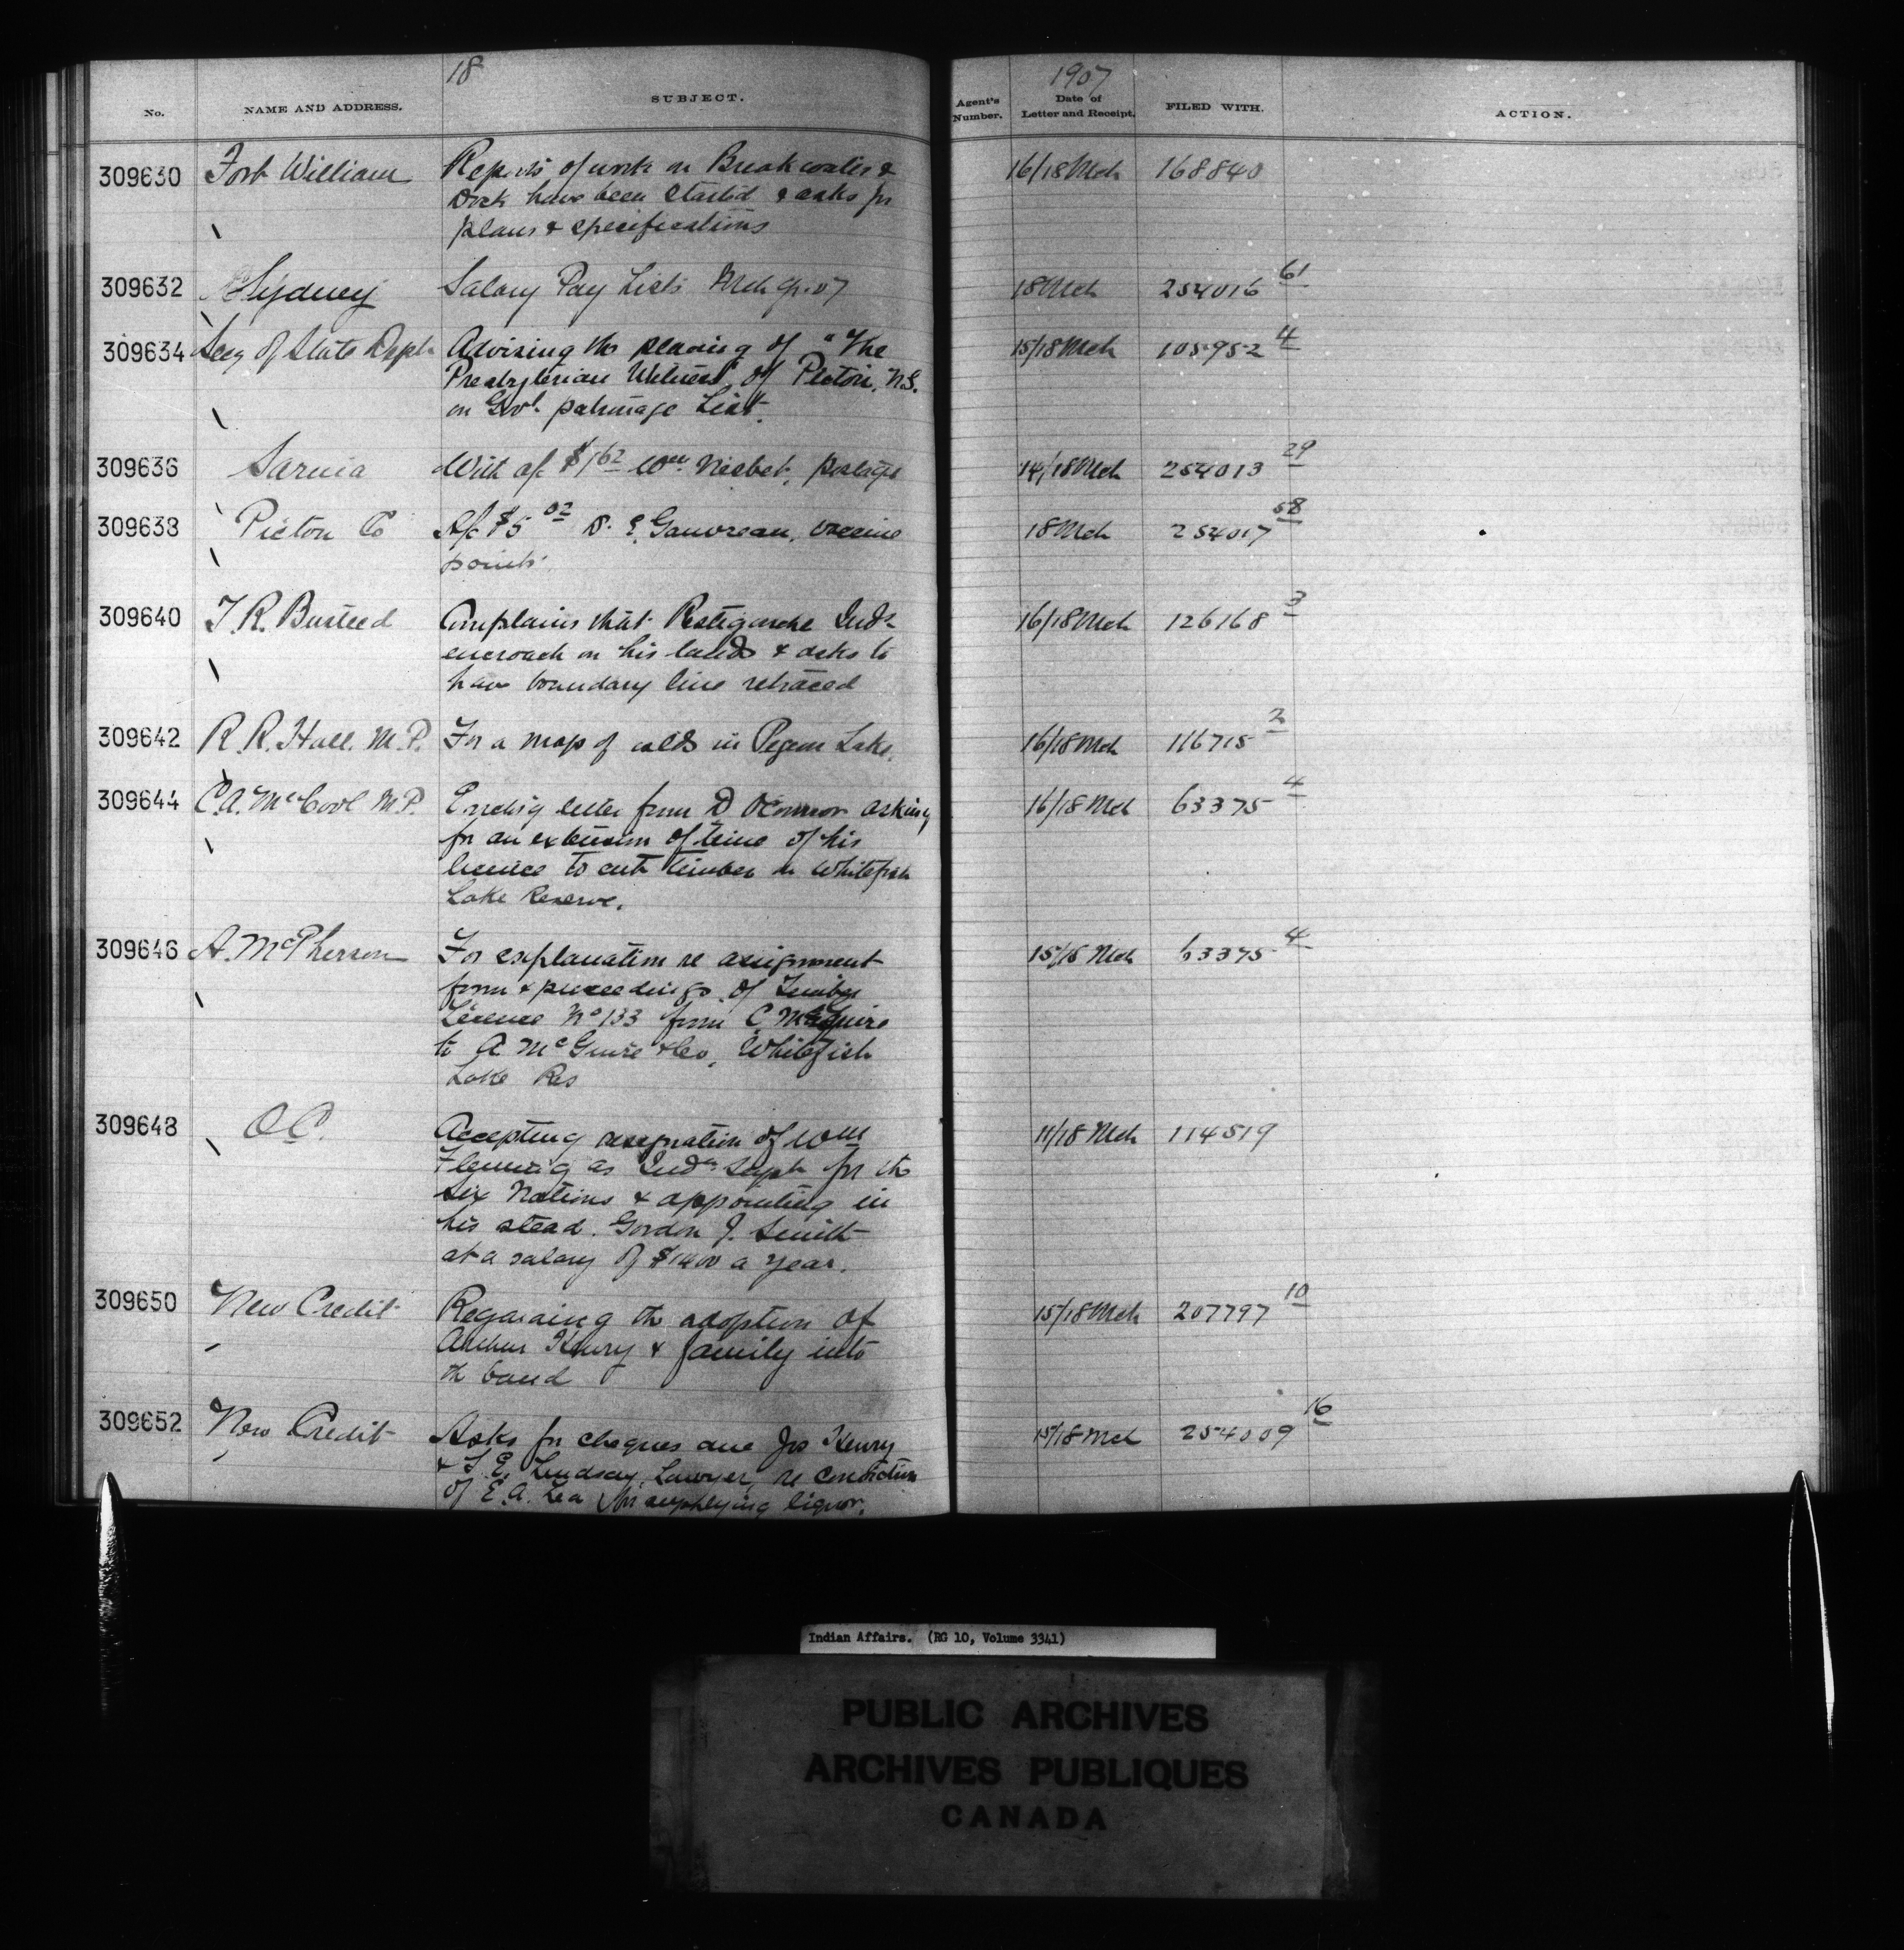 18
1907
No. NAME AND ADDRESS. SUBJECT. Agent's Number. Date of Letter and Receipt. FILED WITH. ACTION.
309630 Fort William Reports of work on Breakwater & 16/18 Mch 168840
Dock have been started & asks for
plans & specifications
309632 Sydney Salary Pay Lists Mch qr. 07 18 Mch 254016 61
309634 Secy of State Dept Advising the placing of "The 15/18 Mch 105952 4
Presbyterian Witness" of Pictou, N.S.
on Govt. patronage List.
309636 Sarnia With a/c $1 62 Wm Nisbet, postage 14/18 Mch 254013 29
309638 Pictou Co A/c $5 02 D. E. Gauvreau, vaccine 18 Mch 254017 58
points.
309640 T. R. Busteed Complains that Restigouche Inds 16/18 Mch 126168 3
encroach on his lands & asks to
have boundary line retraced
309642 R. R. Hall. M.P. For a map of islds in Pigeon Lake. 16/18 Mch 116715 2
309644 C. A. McCool M.P. Encldg letter from D OConnor asking 16/18 Mch 63375 4
for an extension of time of his
license to cut timber on Whitefish
Lake Reserve.
309646 A. McPherson For explanation re assignment 15/18 Mch 63375 4
form & proceedings of Timber
License No 133 from C. McGuire
to A. McGuire & Co, Whitefish
Lake Res
309648 O.C. Accepting resignation of Wm 11/18 Mch 114519
Fleming as Indn Supt for the
Six Nations & appointing in
his stead. Gordon J. Smith
at a salary of $1400 a year.
309650 New Credit Regarding the adoption of 15/18 Mch 207797 10
Arthur Henry & family into
the band
309652 New Credit Asks for cheques due Jos Henry 15/18 Mch 254009 16
& T. E. Lindsay, Lawyer, re conviction
of E. A. Lea for supplying liquor.
Indian Affairs. (RG 10, Volume 3341)
PUBLIC ARCHIVES
ARCHIVES PUBLIQUES
CANADA